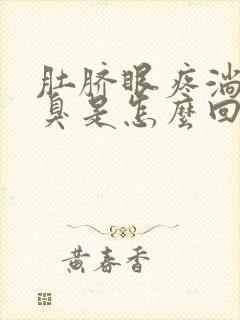 肚脐眼疼淌
臭是怎麼回
黄春香